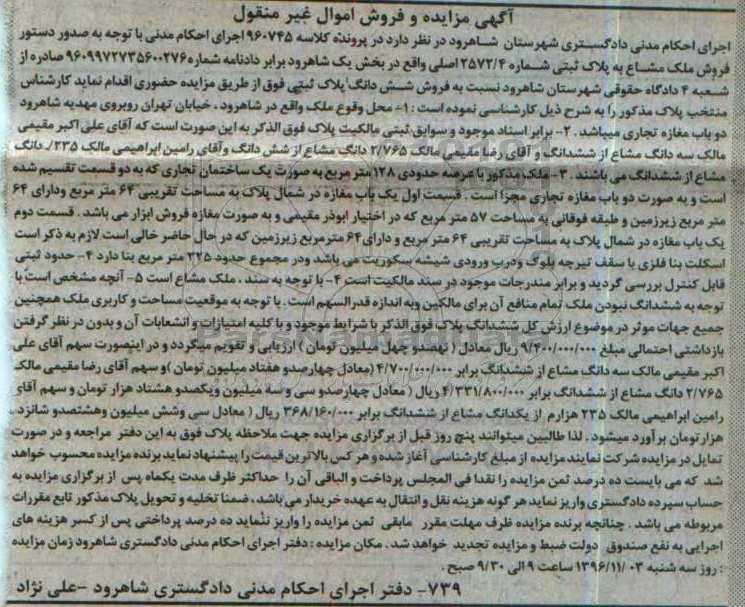 آگهی مزایده و فروش اموال غیر منقول
اجرای احکام مدنی دادگستری شهرستان شاهرود در نظر دارد در پرونده کلاسه ۹۶۰۷۴۵ اجرای احکام مدنی با توجه به صدور دستور
فروش ملک مشاع به پلاک ثبتی شماره ۲۵۷۲/۴ اصلی واقع در بخش یک شاهرود برابر دادنامه شماره ۹۶۰۹۹۷۲۷۳۵۶۰۰۲۷۶ صادره از
شعبه ۴ دادگاه حقوقی شهرستان شاهرود نسبت به فروش شش دانگ پلاک ثبتی فوق از طریق مزایده حضوری اقدام نماید کارشناس
منتخب پلاک مذکور را به شرح ذیل کارشناسی نموده است : ۱- محل وقوع ملک واقع در شاهرود . خیابان تهران روبروی مهدیه شاهرود
دو باب مغازه تجاری میباشد . ۲- برابر اسناد موجود و سوابق ثبتی مالکیت پلاک فوق الذکر به این صورت است که آقای علی اکبر مقیمی
مالک سه دانگ مشاع از ششدانگ و آقای رضا مقیمی مالک ۲/۷۶۵ دانگ مشاع از شش دانگ وآقای رامین ابراهیمی مالک ۲۳۵/. دانگ
مشاع از ششدانگ می باشند . ۳- ملک مذکور با عرصه حدودی ۱۲۸ متر مربع به صورت یک ساختمان تجاری که به دو قسمت تقسیم شده
است و به صورت دو باب مغازه تجاری مجزا است . قسمت اول یک باب مغازه در شمال پلاک به مساحت تقریبی ۶۴ متر مربع ودارای ۶۴
متر مربع زیرزمین و طبقه فوقانی به مساحت ۵۷ متر مربع که در اختیار ابوذر مقیمی و به صورت مغازه فروش ابزار می باشد . قسمت دوم
یک باب مغازه در شمال پلاک به مساحت تقریبی ۶۴ متر مربع و دارای ۶۴ مترمربع زیرزمین که در حال حاضر خالی است لازم به ذکر است
اسکلت بنا فلزی با سقف تیرچه بلوک ودرب ورودی شیشه سکوریت می باشد ودر مجموع حدود ۲۲۵ متر مربع بنا دارد ۴- حدود ثبتی
قابل کنترل بررسی گردید و برابر مندرجات موجود در سند مالکیت است ۴- با توجه به سند ، ملک مشاع است ۵- آنچه مشخص است با
توجه به ششدانگ نبودن ملک تمام منافع آن برای مالکین وبه اندازه قدرالسهم است . با توجه به موقعیت مساحت و کاربری ملک همچنین
جمیع جهات موثر در موضوع ارزش کل ششدانگ پلاک فوق الذکر با شرایط موجود و با کلیه امتیازات و انشعابات آن و بدون در نظر گرفتن
بازداشتی احتمالی مبلغ ۹/۴۰۰/۰۰۰/۰۰۰ ریال معادل ( نهصدو چهل میلیون تومان ) ارزیابی و تقویم میگردد و در اینصورت سهم آقای علی
اکبر مقیمی مالک سه دانگ مشاع از ششدانگ برابر ۴/۷۰۰/۰۰۰/۰۰۰ (معادل چهارصدو هفتاد میلیون تومان )و سهم آقای رضا مقیمی مالک
۲/۷۶۵ دانگ مشاع از ششدانگ برابر ۴/۳۳۱/۸۰۰/۰۰۰ ریال ( معادل چهارصدو سی و سه میلیون ویکصدو هشتاد هزار تومان و سهم آقای
رامین ابراهیمی مالک ۲۳۵ هزارم از یکدانگ مشاع از ششدانگ برابر ۳۶۸/۱۶۰/۰۰۰ ریال ( معادل سی وشش میلیون وهشتصدو شانزده
هزار تومان برآورد میشود . لذا طالبین میتوانند پنج روز قبل از برگزاری مزایده جهت ملاحظه پلاک فوق به این دفتر مراجعه و در صورت
تمایل در مزایده شرکت نمایند مزایده از مبلغ کارشناسی آغاز شده و هر کس بالاترین قیمت را پیشنهاد نماید برنده مزایده محسوب خواهد
شد که می بایست ده درصد ثمن مزایده را نقدا فی المجلس پرداخت و الباقی آن را حداکثر ظرف مدت یکماه پس از برگزاری مزایده به
حساب سپرده دادگستری واریز نماید هر گونه هزینه نقل و انتقال به عهده خریدار می باشد ، ضمنا تخلیه و تحویل پلاک مذکور تابع مقررات
مربوطه می باشد . چنانچه برنده مزایده ظرف مهلت مقرر مابقی ثمن مزایده را واریز ننماید ده درصد پرداختی پس از کسر هزینه های
اجرایی به نفع صندوق دولت ضبط و مزایده تجدید خواهد شد . مکان مزایده : دفتر اجرای احکام مدنی دادگستری شاهرود زمان مزایده
: روز سه شنبه ۱۳۹۶/۱۱/۰۳ ساعت ۹ الی ۹/۳۰ صبح .
۷۳۹- دفتر اجرای احکام مدنی دادگستری شاهرود -علی نژاد